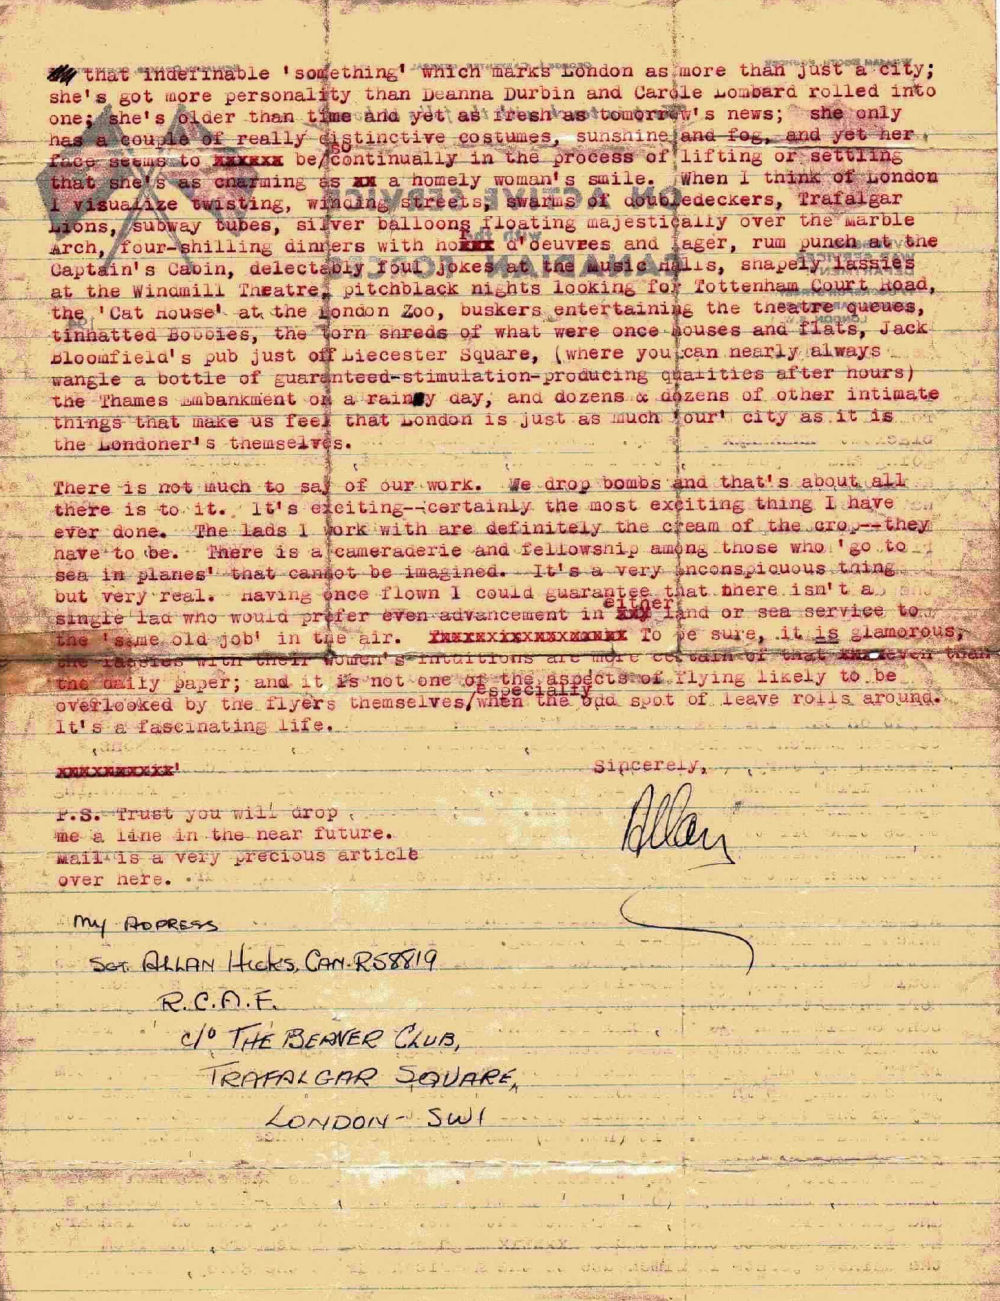 that indefinable 'something' which marks London as more than just a city;
she's got more personality than Deanna Durbin and Carole Lombard rolled into
one; she's older than time and yet as fresh as tomorrow's news; she only
has a couple of really distinctive costumes, sunshine and fog, and yet her
face seems to xxxxxx be/go continually in the process of lifting or settling
that she's as charming as xx a homely woman's smile. When I think of London
I visualize twisting, winding streets, swarms of doubledeckers, Trafalgar
Lions, subway tubes, silver balloons floating majestically over the Marble
Arch, four-shilling dinners with hors d'oeuvres and lager, rum punch at the
Captain's Cabin, delectably foul jokes at the Music Halls, shapely lassies
at the Windmill Theatre, pitchblack nights looking for Tottenham Court Road,
the 'Cat House' at the London Zoo, buskers entertaining the theatre queues,
tinhatted Bobbies, the torn shreds of what were once houses and flats, Jack
Bloomfield's pub just off Liecester Square, (where you can nearly always
wangle a bottle of guaranteed-stimulation-producing qualities after hours)
the Thames Embankment on a rainy day, and dozens & dozens of other intimate
things that make us feel that London is just as much 'our' city as it is
the Londoner's themselves.
There is not much to say of our work. We drop bombs and that's about all
there is to it. It's exciting--certainly the most exciting thing I have
ever done. The lads I work with are definitely the cream of the crop--they
have to be. There is a cameraderie and fellowship among those who 'go to
sea in planes' that cannot be imagined. It's a very inconspicuous thing
but very real. Having once flown I could guarantee that there isn't a
single lad who would prefer even advancement in xxx either land or sea service to
the 'same old job' in the air. To be sure, it is glamorous;
the lassies with their women's intuitions are more certain of that xxxx even than
the daily paper; and it is not one of the aspects of flying likely to be
overlooked by the flyers themselves/especially when the odd spot of leave rolls around.
It's a fascinating life.
Sincerely,
Allan
P.S. Trust you will drop
me a line in the near future.
Mail is a very precious article
over here.
My ADDRESS
SGT. ALLAN HICKS, CAN. R58819
R.C.A.F.
c/o THE BEAVER CLUB,
TRAFALGAR SQUARE,
LONDON - SW1